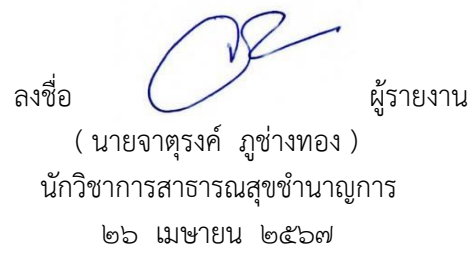 ลงชื่อ ผู้รายงาน
( นายจาตุรงค์ ภูช่างทอง )
นักวิชาการสาธารณสุขชำนาญการ
๒๖ เมษายน ๒๕๖๗